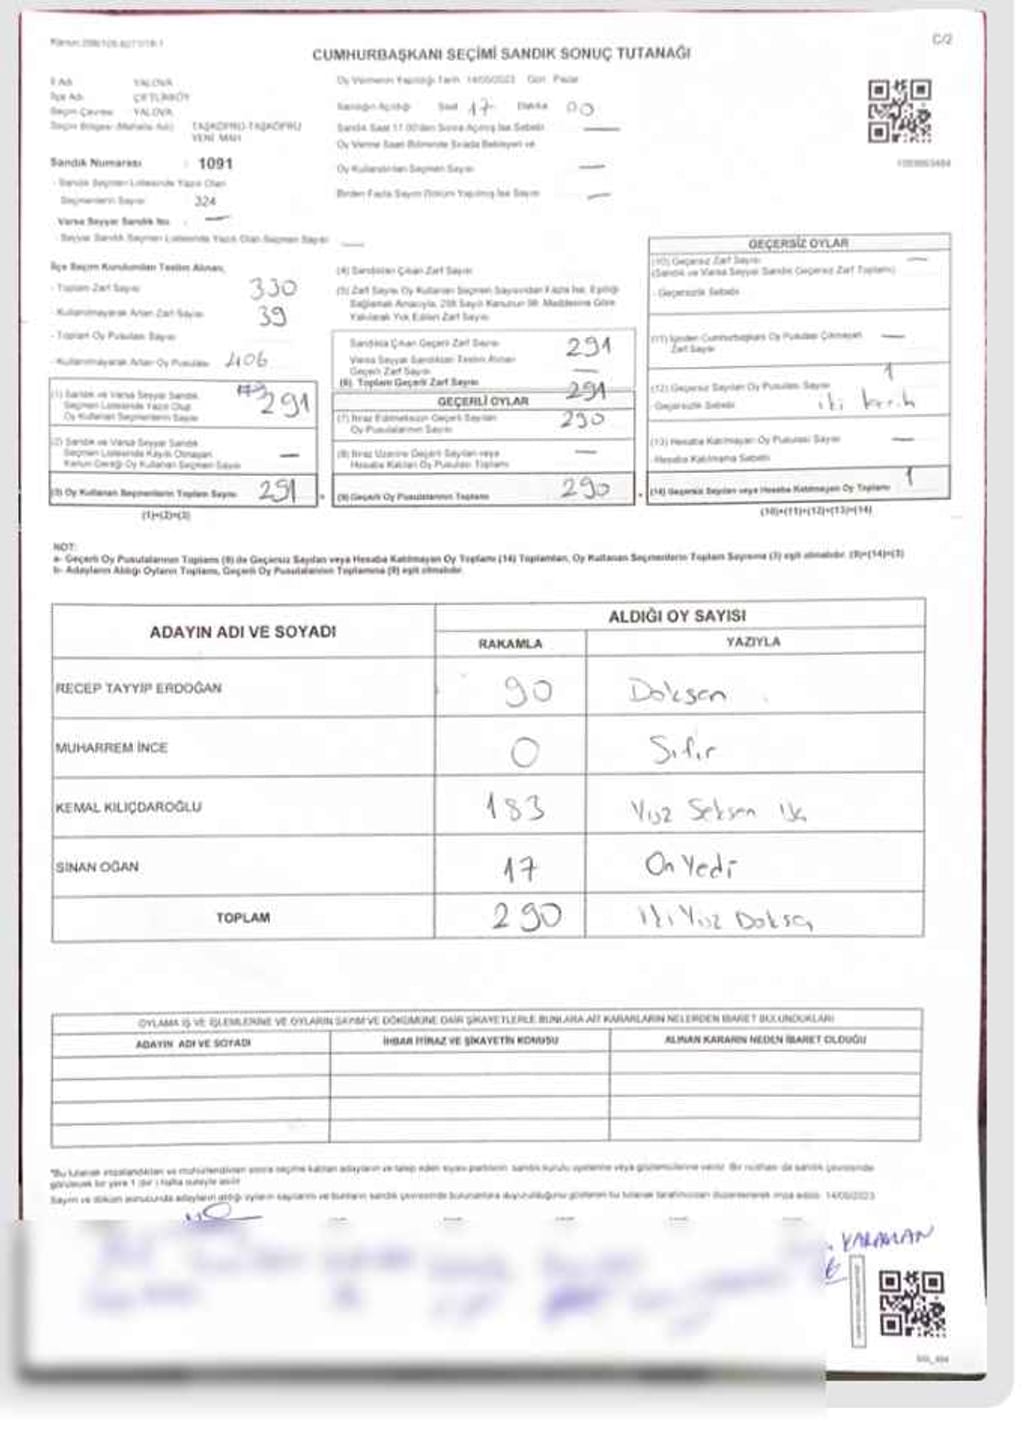 C/2
CUMHURBAŞKANI SEÇİMİ SANDIK SONUÇ TUTANAĞI
İl Adı YALOVA
İlçe Adı ÇİFTLİKKÖY
Seçim Çevresi YALOVA
Seçim Bölgesi (Mahalle Adı) TAŞKÖPRÜ-TAŞKÖPRÜ
YENİ MAH
Sandık Numarası : 1091
- Sandık Seçmen Listesinde Yazılı Olan
Seçmenlerin Sayısı 324
Varsa Seyyar Sandık No. : —
- Seyyar Sandık Seçmen Listesinde Yazılı Olan Seçmen Sayısı —
Oy Vermenin Yapıldığı Tarih 14/05/2023 Gün Pazar
Sandığın Açıldığı Saat 17 Dakika 00
Sandık Saat 17.00'den Sonra Açılmış İse Sebebi —
Oy Verme Saati Bitiminde Sırada Bekleyen ve
Oy Kullandırılan Seçmen Sayısı —
Birden Fazla Sayım Döküm Yapılmış İse Sayısı —
İlçe Seçim Kurulundan Teslim Alınan;
- Toplam Zarf Sayısı 330
- Kullanılmayarak Artan Zarf Sayısı 39
- Toplam Oy Pusulası Sayısı
- Kullanılmayarak Artan Oy Pusulası 406
(1) Sandık ve Varsa Seyyar Sandık
Seçmen Listesinde Yazılı Olup
Oy Kullanan Seçmenlerin Sayısı 291
(2) Sandık ve Varsa Seyyar Sandık
Seçmen Listesinde Kayıtlı Olmayan
Kanun Gereği Oy Kullanan Seçmen Sayısı —
(3) Oy Kullanan Seçmenlerin Toplam Sayısı 291
(1)+(2)=(3)
(4) Sandıktan Çıkan Zarf Sayısı
(5) Zarf Sayısı Oy Kullanan Seçmen Sayısından Fazla İse, Eşitliği
Sağlamak Amacıyla, 298 Sayılı Kanunun 98. Maddesine Göre
Yakılarak Yok Edilen Zarf Sayısı
Sandıkta Çıkan Geçerli Zarf Sayısı 291
Varsa Seyyar Sandıktan Teslim Alınan
Geçerli Zarf Sayısı —
(6) Toplam Geçerli Zarf Sayısı 291
GEÇERLİ OYLAR
(7) İtiraz Edilmeksizin Geçerli Sayılan
Oy Pusulalarının Sayısı 290
(8) İtiraz Üzerine Geçerli Sayılan veya
Hesaba Katılan Oy Pusulası Toplamı —
(9) Geçerli Oy Pusulalarının Toplamı 290
GEÇERSİZ OYLAR
(10) Geçersiz Zarf Sayısı —
(Sandık ve Varsa Seyyar Sandık Geçersiz Zarf Toplamı)
- Geçersizlik Sebebi
(11) İçinden Cumhurbaşkanı Oy Pusulası Çıkmayan
Zarf Sayısı —
(12) Geçersiz Sayılan Oy Pusulası Sayısı 1
-Geçersizlik Sebebi iki
(13) Hesaba Katılmayan Oy Pusulası Sayısı —
-Hesaba Katılmama Sebebi
(14) Geçersiz Sayılan veya Hesaba Katılmayan Oy Toplamı 1
(10)+(11)+(12)+(13)=(14)
NOT:
a- Geçerli Oy Pusulalarının Toplamı (9) ile Geçersiz Sayılan veya Hesaba Katılmayan Oy Toplamı (14) Toplamları, Oy Kullanan Seçmenlerin Toplam Sayısına (3) eşit olmalıdır. (9)+(14)=(3)
b- Adayların Aldığı Oyların Toplamı, Geçerli Oy Pusulalarının Toplamına (9) eşit olmalıdır.
ADAYIN ADI VE SOYADI
ALDIĞI OY SAYISI
RAKAMLA YAZIYLA
RECEP TAYYİP ERDOĞAN 90 Doksan
MUHARREM İNCE 0 Sıfır
KEMAL KILIÇDAROĞLU 183 Yüz Seksen
SİNAN OĞAN 17 On Yedi
TOPLAM 290 İki Yüz Doksa
OYLAMA İŞ VE İŞLEMLERİNE VE OYLARIN SAYIM VE DÖKÜMÜNE DAİR ŞİKAYETLERLE BUNLARA AİT KARARLARIN NELERDEN İBARET BULUNDUKLARI
ADAYIN ADI VE SOYADI İHBAR İTİRAZ VE ŞİKAYETİN KONUSU ALINAN KARARIN NEDEN İBARET OLDUĞU
*Bu tutanak imzalandıktan ve mühürlendikten sonra seçime katılan adayların ve talep eden siyasi partilerin, sandık kurulu üyelerine veya gözlemcilerine verilir. Bir nüshası da sandık çevresinde
görülecek bir yere 1 (bir) hafta süreyle asılır.
Sayım ve döküm sonucunda adayların aldığı oyların sayılarını ve bunların sandık çevresinde bulunanlara duyurulduğunu gösteren bu tutanak tarafımızdan düzenlenerek imza edildi. 14/05/2023
KARAMAN